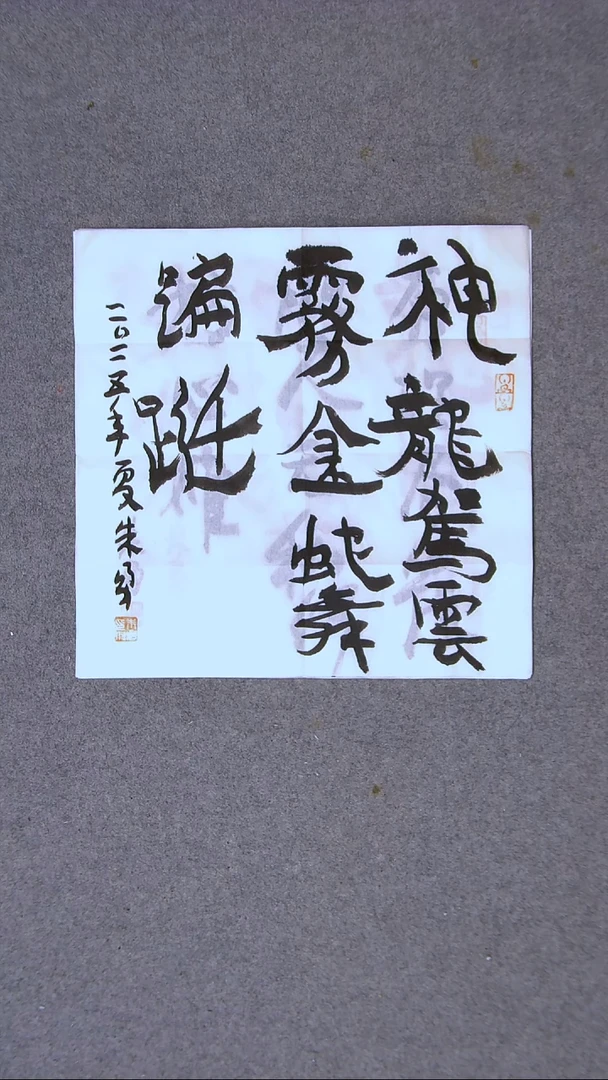 神龍駕雲
霧金蛇舞
蹁跹
二〇二五年夏朱